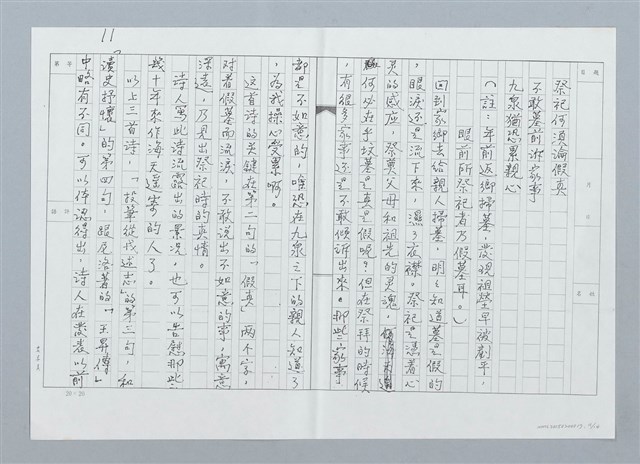 11
祭祀何須論假真
不敢墓前訴家事
九泉猶恐累親心
(註：年前返鄉掃墓，發現祖塋早被剷平，
眼前所祭祀者乃假墓耳。)
回到家鄉去給親人掃墓，明明知道墓是假的
，眼淚還是流下來，濕了衣襟。祭祀是憑著心
靈的感應，祭奠父母和祖先的靈魂，
何必在乎墳墓是真是假呢？但在祭拜的時候
，有很多家事還是不敢傾訴出來。那些家事，
都是不如意的，唯恐在九泉之下的親人知道了
，為我操心受累啊。
這首詩的關鍵在第二句的「假真」兩个字，
對着假墓而流淚，不敢說出不如意的事，寓意
深遠，乃見出祭祀時的真情。
詩人寫此詩流露出的景況，也可以告慰那些
幾十年來作海天遙寄的人了。
以上三首詩，「投筆從戎述志」的第三句，和
讀史抒懷」的第四句，跟尼洛著的「王昇傳」
中略有不同。可以体認得出，詩人在發表以前
20×20